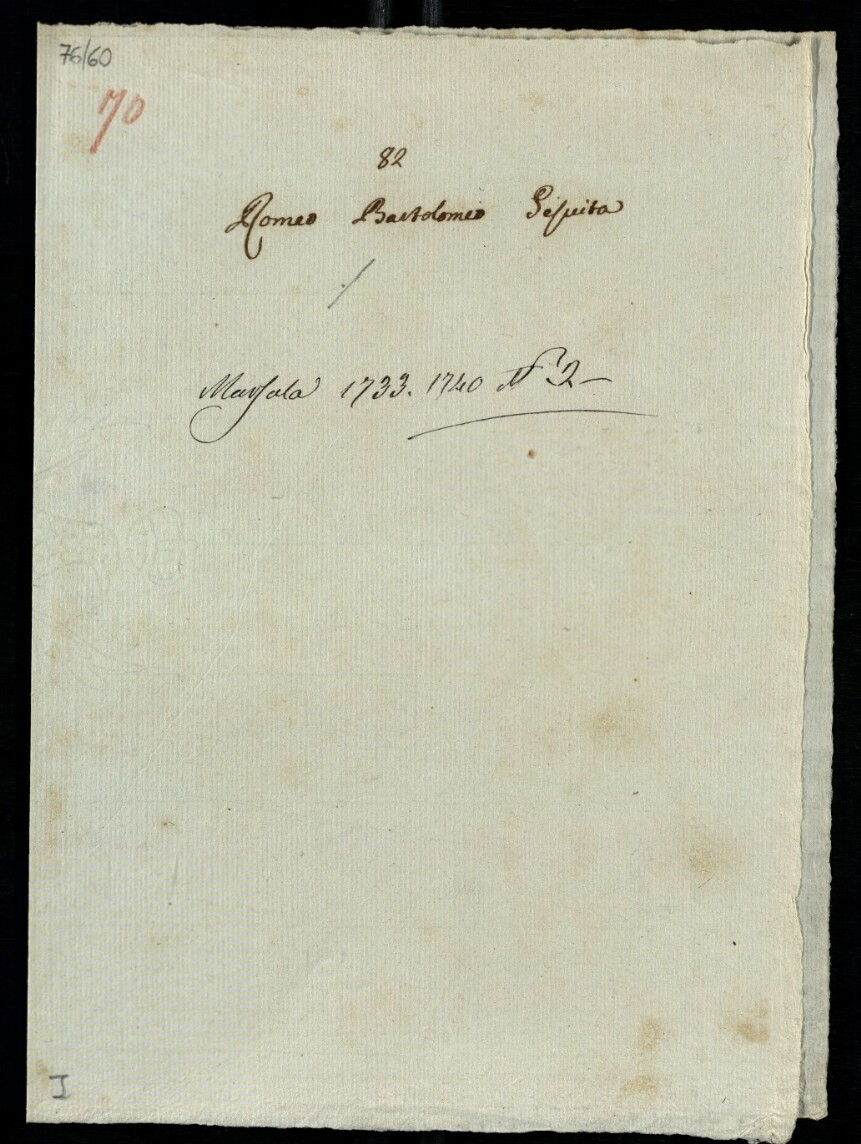 76/60
70
82
Romeo Bartolomeo Gesuita
Marsala 1733. 1740 N° 2 –
I